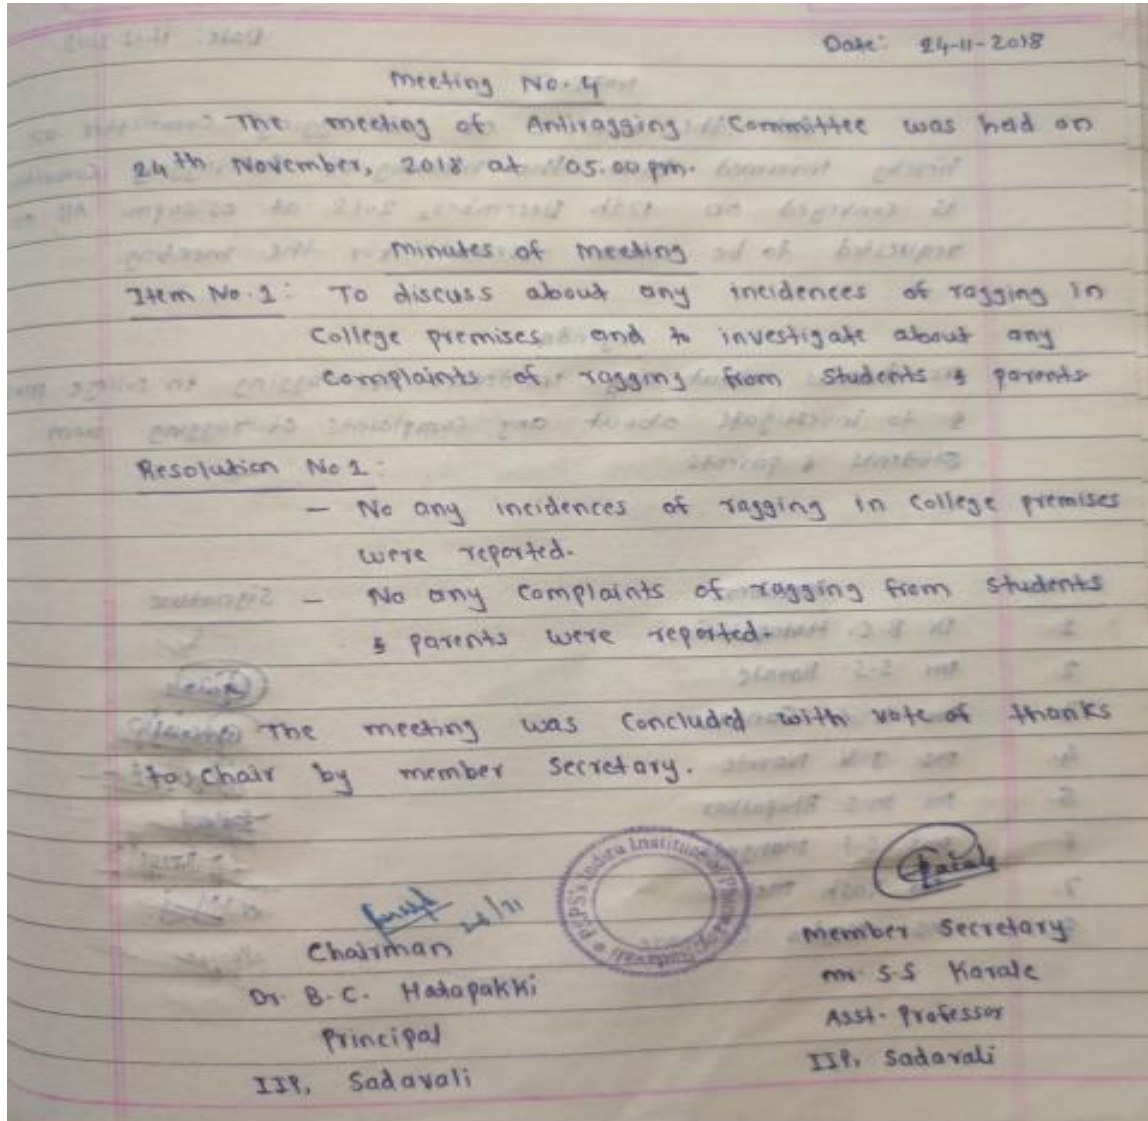 Date: 24-11-2018
Meeting No. 4
The meeting of Antiragging Committee was held on
24th November, 2018 at 05.00 pm.
Minutes of Meeting
Item No. 1: To discuss about any incidences of ragging in
College premises and to investigate about any
Complaints of ragging from Students & parents
Resolution No 1:
- No any incidences of ragging in College premises
were reported.
- No any Complaints of ragging from Students
& parents were reported.
The meeting was Concluded with vote of thanks
to Chair by member Secretary.
PSPS's Indira Institute of Pharmacy
Karale
Chairman
Member Secretary
Dr. B. C. Hatapakki
Mr S.S Karale
Principal
Asst. Professor
IIP, Sadavali
IIP, Sadavali